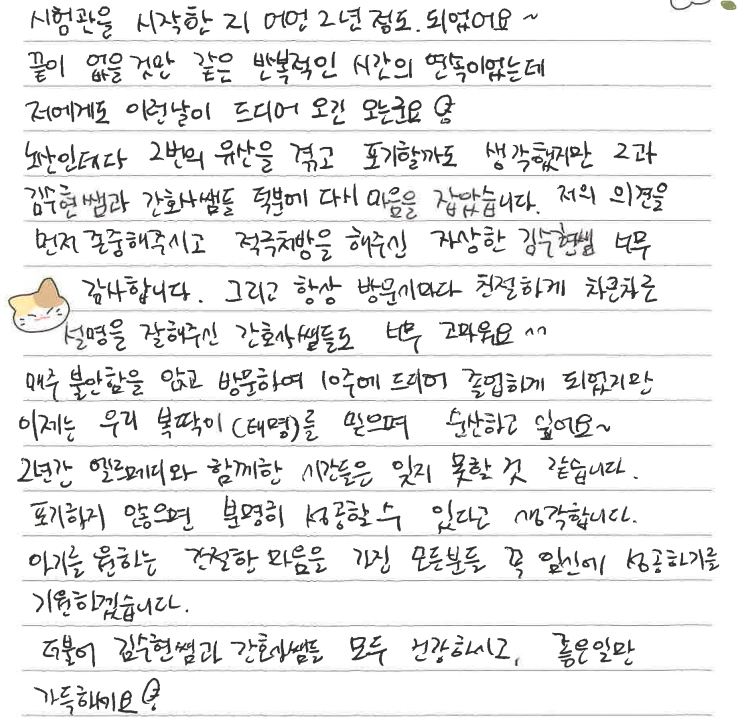 시험관을 시작한 지 어언 2년 정도. 되었어요 ~
끝이 없을 것만 같은 반복적인 시간의 연속이었는데
저에게도 이런날이 드디어 오긴 오는군요
노산인데다 2번의 유산을 겪고 포기할까도 생각했지만 2과
김수현쌤과 간호사쌤들 덕분에 다시 마음을 잡았습니다. 저의 의견을
먼저 존중해주시고 적극처방을 해주신 자상한 김수현쌤 너무
감사합니다. 그리고 항상 방문시마다 친절하게 차근차근
설명을 잘해주신 간호사쌤들도 너무 고마워요 ^^
매주 불안함을 안고 방문하여 10주에 드디어 졸업하게 되었지만
이제는 우리 복딱이(태명)를 믿으며 순산하고 싶어요~
2년간 엘르메디와 함께한 시간들은 잊지 못할 것 같습니다.
포기하지 않으면 분명히 성공할 수 있다고 생각합니다.
아기를 원하는 간절한 마음을 가진 모든분들 꼭 임신에 성공하기를
기원하겠습니다.
더불어 김수현쌤과 간호사쌤들 모두 건강하시고, 좋은일만
가득하세요